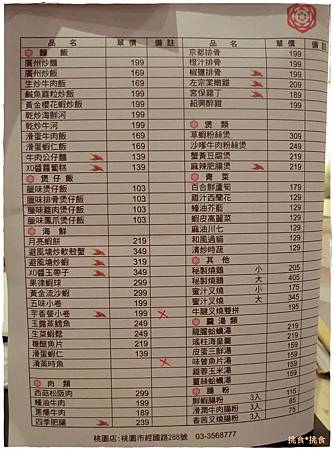 品名 單價 備註
麵飯
廣州炒麵 199
廣州炒飯 169
生炒牛肉飯 169
鹹魚雞粒炒飯 169
黃金櫻花蝦炒飯 169
乾炒海鮮河 199
乾炒牛河 169
滑蛋牛肉飯 169
滑蛋蝦仁飯 169
牛肉公仔麵 139
XO醬蘿蔔糕 139
煲仔飯
臘味煲仔飯 103
臘味排骨煲仔飯 103
臘味雞肉煲仔飯 103
臘味鳳爪煲仔飯 103
海鮮
月亮蝦餅 219
避風塘炒軟殼蟹 349
避風塘炒蝦 319
XO醬玉帶子 349
果律蝦球 299
黃金流沙蝦 299
五味小卷 199
芋香螢小卷 199
玉露蒸鱈魚 219
生菜蝦鬆 219
糖醋魚片 219
滑蛋蝦仁 139
清蒸時魚
肉類
西菇松阪肉 299
蠔油牛肉 199
蔥爆牛肉 189
四季肥腸 239
品名 單價 備註
京都排骨 199
橙汁排骨 199
椒鹽排骨 199
左宗棠嫩雞 209
宮保雞丁 189
紹興醉雞 199
煲類
草蝦粉絲煲 309
沙嗲牛肉粉絲煲 249
蟹黃豆腐煲 219
麻辣肥腸煲 219
青菜
百合鮮蘆筍 179
雞汁西蘭花 129
蠔油芥藍 129
蝦皮高麗菜 129
麻油川七 129
和風過貓 129
清炒時蔬 129
其他
秘製燒鵝 小 205
秘製燒鵝 大 405
蜜汁叉燒 小 175
蜜汁叉燒 大 345
牛腱叉燒雙拼 195
羹湯類
雞茸蛤蠣湯 159
瑤柱海皇羹 159
皮蛋三鮮湯 159
味曾魚片湯 159
雞蓉玉米湯 159
薑絲蛤蠣湯 159
腸粉
鮮蝦腸粉 3入 85
滑潤牛肉腸粉 3入 75
香茜叉燒腸粉 3入 75
桃園店:桃園市經國路288號 03-3568777
挑食*挑食